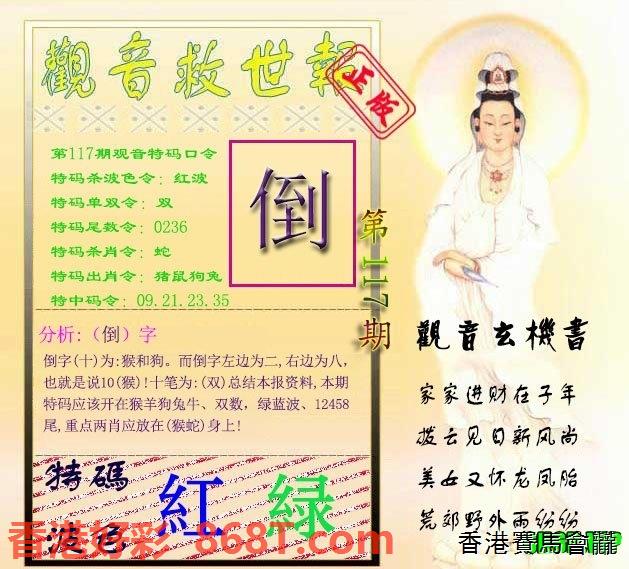 觀音救世報
正版
第117期观音特码口令
特码杀波色令：红波
特码单双令：双
特码尾数令：0236
特码杀肖令：蛇
特码出肖令：猪鼠狗兔
特中码令：09.21.23.35
倒
第117期
分析:（倒）字
倒字(十)为:猴和狗。而倒字左边为二,右边为八,
也就是说10(猴)!十笔为:(双)总结本报资料,本期
特码应该开在猴羊狗兔牛、双数，绿蓝波、12458
尾,重点两肖应放在(猴蛇)身上!
特碼
波色
紅 綠
觀音玄機書
家家进财在子年
拨云见日新风尚
美女又怀龙凤胎
荒郊野外雨纷纷
香港好彩 868T.com
香港賽馬會